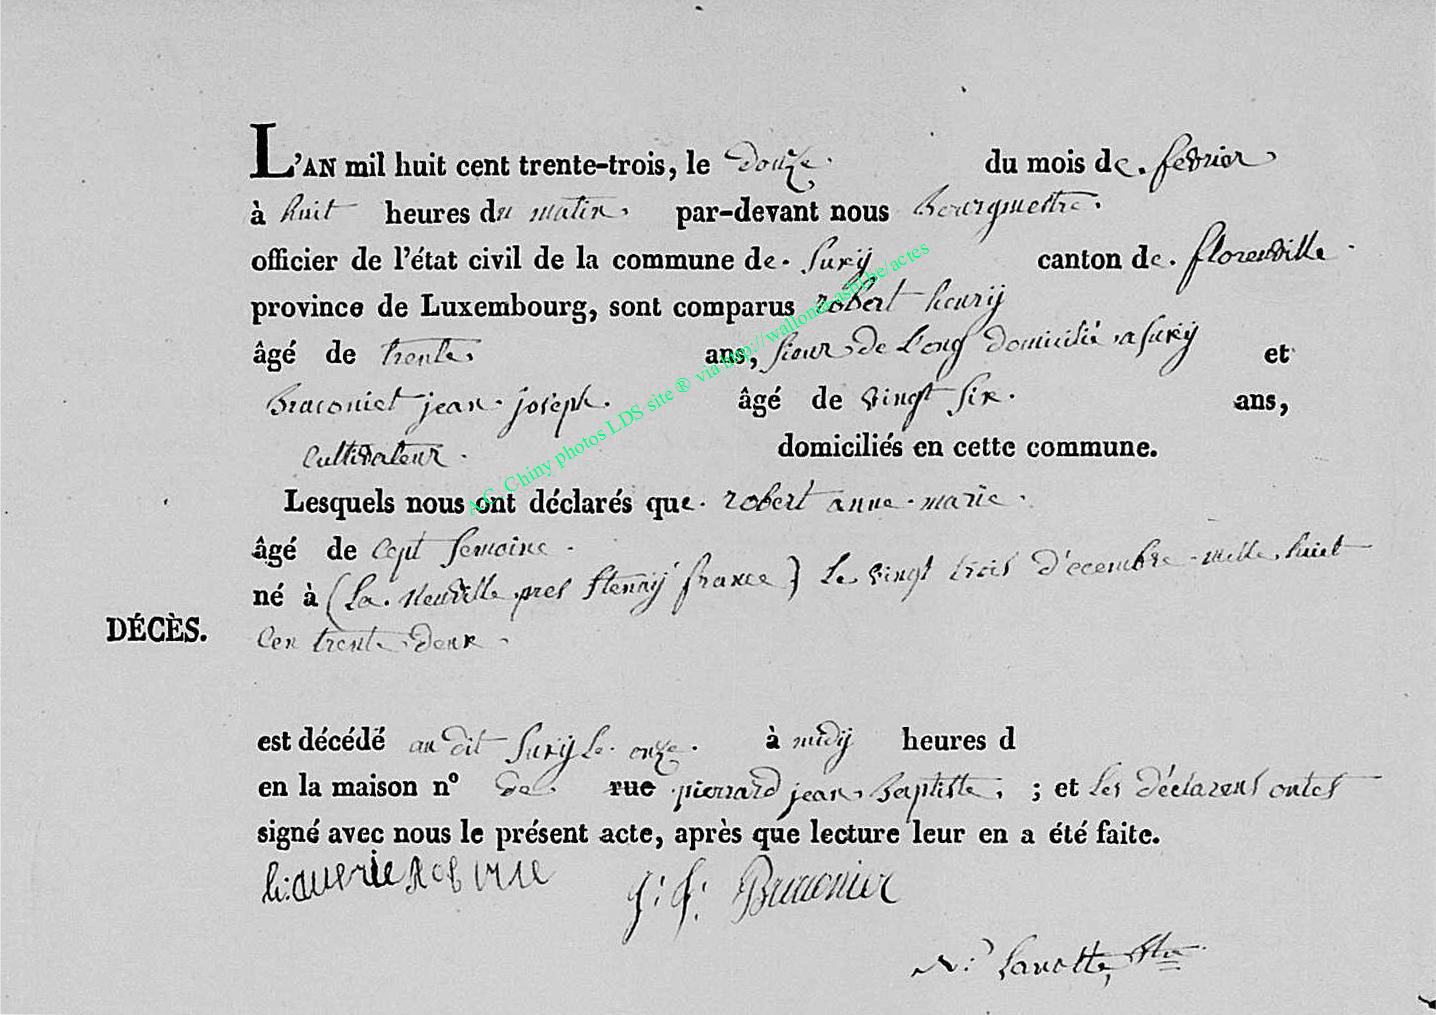 L'AN mil huit cent trente-trois, le douze du mois de fevrier
à huit heures du matin, par-devant nous Bourgmettre
officier de l'état civil de la commune de Suxÿ canton de florenville
province de Luxembourg, sont comparus robert henrÿ
âgé de trente ans, sieur de Long domicilié a suxÿ et
Braconiet jean joseph âgé de vingt six ans,
Cultivateur domiciliés en cette commune.
Lesquels nous ont déclarés que robert anne marie
âgé de cept semaine
né à (La Neuville pres Stenaÿ france) Le vingt trois décembre mille huiet
DÉCÈS. Cen trente deux
est décédé au dit Suxÿ le onze à midÿ heures d
en la maison nº de rue pierrard jean Baptiste ; et les déclarens ontes
signé avec nous le présent acte, après que lecture leur en a été faite.
J: J: Braconier
N: Lanotte
A.C. Chiny photos LDS site ® via http://wallonica.ash.be/actes